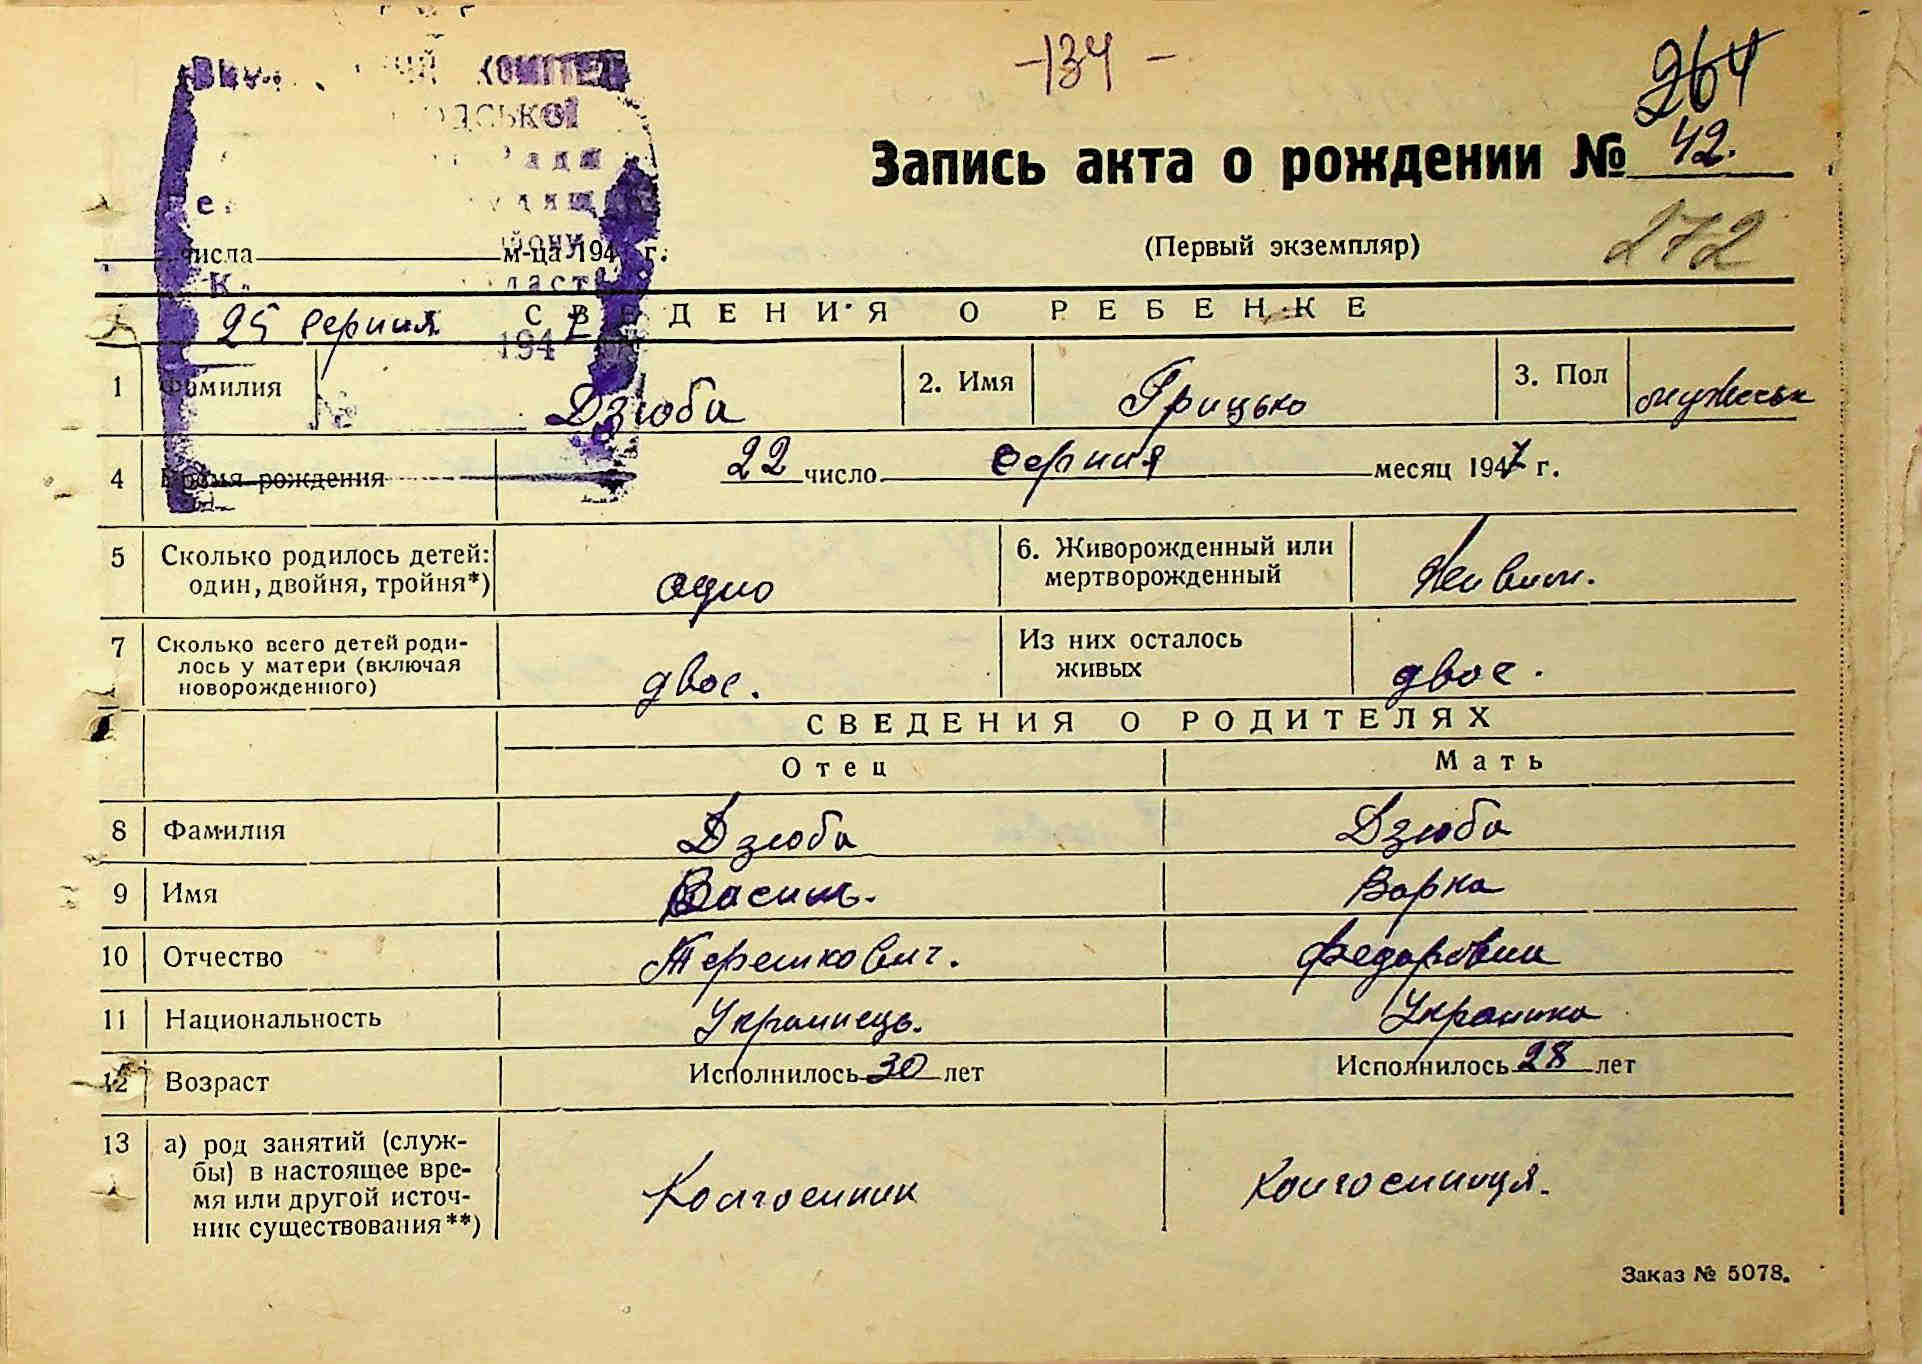 -134-
264
КОМІТЕТ
Запись акта о рождении № 42.
числа м-ца 194 г.
(Первый экземпляр)
272
СВЕДЕНИЯ О РЕБЕНКЕ
25 серпня 1947
1 Фамилия Дзюба 2. Имя Грицько 3. Пол
4 Время рождения 22 число серпня месяц 1947 г.
5 Сколько родилось детей: один, двойня, тройня*) одно 6. Живорожденный или мертворожденный
7 Сколько всего детей родилось у матери (включая новорожденного) двое. Из них осталось живых двое.
СВЕДЕНИЯ О РОДИТЕЛЯХ
Отец Мать
8 Фамилия Дзюба Дзюба
9 Имя Василь. Варка
10 Отчество Терешкович. Федоровна
11 Национальность Українець. Українка
12 Возраст Исполнилось 30 лет Исполнилось 28 лет
13 а) род занятий (служ-
бы) в настоящее вре-
мя или другой источ-
ник существования**) Колгоспник Колгоспниця.
Заказ № 5078.